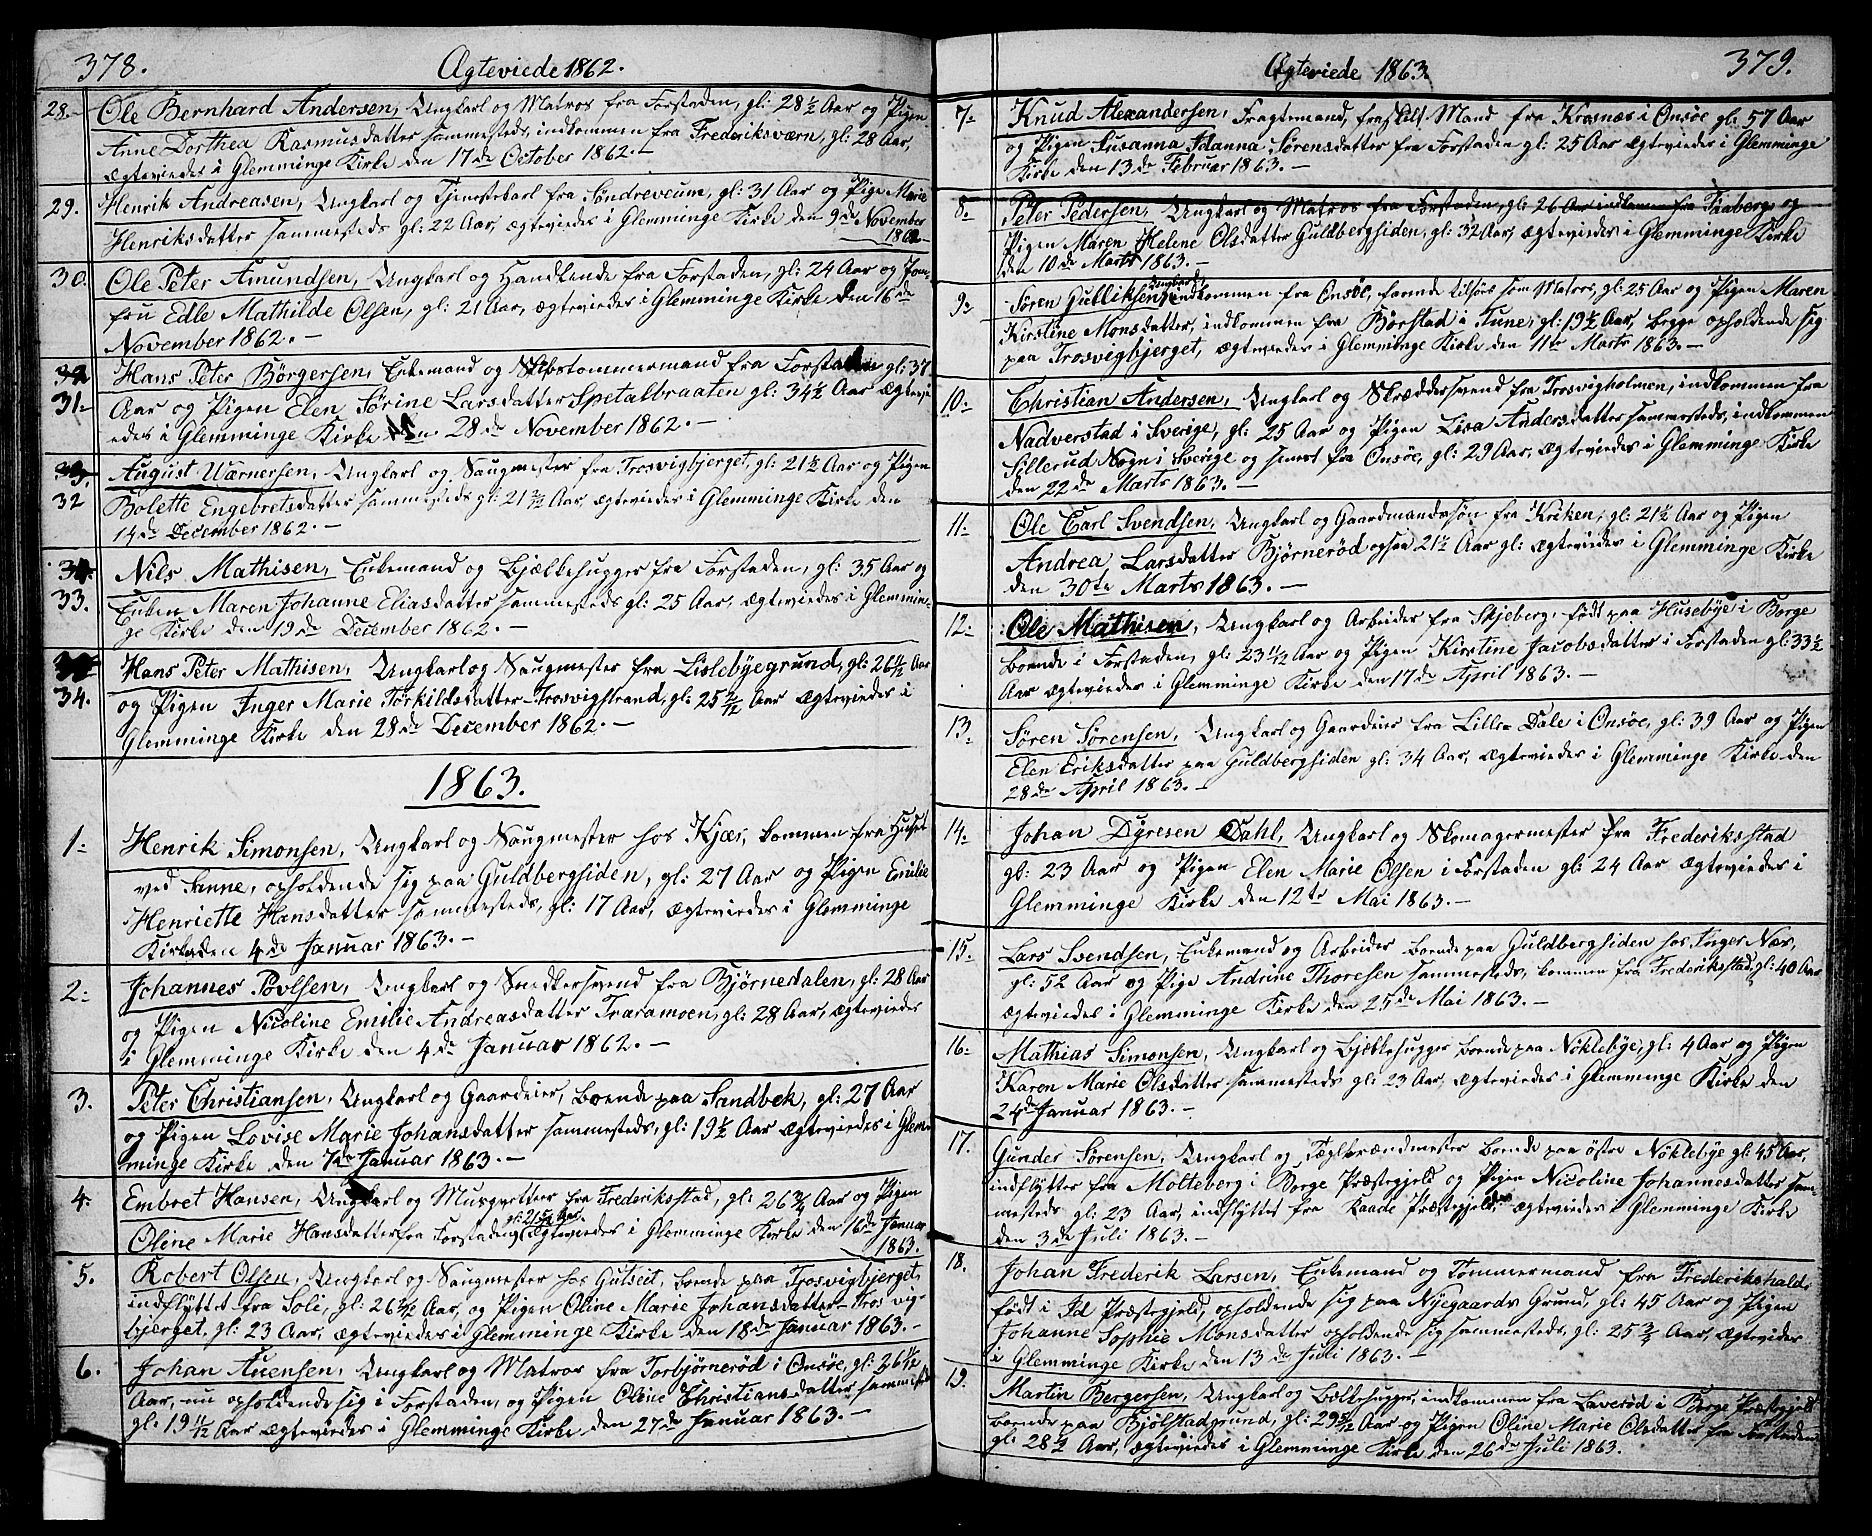 378.
Ægteviede 1862.
28. Ole Bernhard Andersen, Ungkarl og Matros fra Forstaden, gl: 28 1/2 Aar og Pigen
Anne Dorthea Rasmusdatter sammesteds, indkommen fra Frederiksværn, gl: 28 Aar,
ægteviedes i Glemminge Kirke den 17de October 1862.-
29. Henrik Andreasen, Ungkarl og Tjenestekarl fra Søndreveum, gl: 31 Aar og Pige Marie
Henriksdatter sammesteds gl: 22 Aar, ægteviedes i Glemminge Kirke den 9de November
1862
30. Ole Peter Amundsen, Ungkarl og Handlende fra Forstaden, gl: 24 Aar og Jom-
fru Edle Mathilde Olsen, gl: 21 Aar, ægteviedes i Glemminge Kirke den 16de
November 1862.-
31. Hans Peter Børgersen, Enkemand og Skibstømmermand fra Forstaden gl: 37
Aar og Pigen Elen Sørine Larsdatter Spetalbraaten gl: 34 1/2 Aar ægtevi-
edes i Glemminge Kirke den 28de November 1862.-
32 August Wärnersen, Ungkarl og Saugmester fra Trosvigbjerget, gl: 21 1/2 Aar og Pigen
Bolette Engebretsdatter sammesteds gl: 21 Aar, ægteviedes i Glemminge Kirke den
14de December 1862.-
33. Nils Mathisen, Enkemand og Bjælkehugger fra Forstaden, gl: 35 Aar og
Enken Maren Johanne Eliasdatter sammesteds gl: 25 Aar, ægteviedes i Glemmin-
ge Kirke den 19de December 1862.-
34. Hans Peter Mathisen, Ungkarl og Saugmester fra Lislebyegrund, gl: 26 Aar
og Pigen Inger Marie Törkildsdatter Trosvigstrand, gl: 25 2/12 Aar ægteviedes i
Glemminge Kirke den 28de December 1862.-
1863.
1. Henrik Simonsen, Ungkarl og Saugmester hos Kjær, kommen fra Huset
ved Sanne, opholdende sig paa Guldbergsiden, gl: 27 Aar og Pigen Emilie
Henriette Hansdatter sammesteds, gl: 17 Aar, ægteviedes i Glemminge
Kirke den 4de Januar 1863.-
2. Johannes Povlsen, Ungkarl og Snedkersvend fra Bjørnedalen, gl: 28 Aar
og Pigen Nicoline Emilie Andreasdatter Traramoen, gl: 28 Aar, ægteviedes
i Glemminge Kirke den 4de Januar 1862.-
3. Peter Christiansen, Ungkarl og Gaardeier, boende paa Sandbek, gl: 27 Aar
og Pigen Lovise Marie Johansdatter sammesteds, gl: 19 1/2 Aar ægteviedes i Glem-
minge Kirke den 7de Januar 1863.-
4. Embret Hansen, Ungkarl og Musqvetteer fra Frederiksstad, gl: 26 3/4 Aar og Pigen
Oline Marie Hansdatter fra Forstaden, gl: 21 5/12 Aar. ægteviedes i Glemminge Kirke den 16de Januar
1863.
5. Robert Olsen, Ungkarl og Saugmester hos Gutseit, boende paa Trosvigbjerget,
indflyttet fra Soli, gl: 26 Aar, og Pigen Oline Marie Johansdatter Trosvig-
bjerget, gl: 23 Aar, ægteviedes i Glemminge Kirke den 18de Januar 1863.-
6. Johan Auensen, Ungkarl og Matros fra Torbjørnerød i Onsøe, gl: 26 Aar,
Aar, nu opholdende sig i Forstaden, og Pigen Oline Christiansdatter, sammesteds
gl: 19 11/12 Aar ægteviedes i Glemminge Kirke, den 27de Januar 1863.-
Ægteviede 1863.
379.
7. Knud Alexandersen, Fragtemand, fraskilt Mand fra Krosnæs i Onsøe gl: 57 Aar
og Pigen Susanna Idanna Sörensdatter fra Forstaden gl: 25 Aar ægteviedes i Glemminge
Kirke den 13de Februar 1863.-
8. Peter Pedersen, Ungkarl og Matros fra Forstaden, gl: 26 Aar indkom fra Fraberg og
Pigen Maren Helene Olsdatter Guldbergsiden, gl: 32 Aar, ægteviedes i Glemminge Kirke
den 10de Marts 1863.-
9. Søren Gulliksen, Ungkarl, indkommen fra Onsøe, farende tilsøs som Matros, gl: 25 Aar og Pigen Maren
Kirstine Monsdatter, indkommen fra Börstad i Tune, gl: 19 1/2 Aar, begge opholdende sig
paa Trosvigbjerget, ægteviedes i Glemminge Kirke den 11te Marts 1863.-
10. Christian Andersen, Ungkarl og Skræddersvend fra Trosvigholmen, indkommen fra
Nadverstad i Sverige, gl: 25 Aar og Pigen Lisa Andersdatter sammesteds, indkommen
Sillerud Sogn i Sverige og senest fra Onsøe, gl: 29 Aar, ægteviedes i Glemminge Kirke
den 22de Marts 1863.-
11. Ole Carl Svendsen, Ungkarl og Gaardmandssøn fra Kriken, gl: 21 1/2 Aar og Pigen
Andrea Larsdatter Bjørnerød ogsaa 21 1/2 Aar gl: ægteviedes i Glemminge Kirke
den 30te Marts 1863.-
12. Ole Mathisen, Ungkarl og Arbeider fra Skjeberg, født paa Husebye i Borge
boende i Forstaden, gl: 23 11/12 Aar og Pigen Kirstine Jacobsdatter i Forstaden gl: 33 1/2
Aar ægteviedes i Glemminge Kirke den 17de April 1863.-
13. Søren Sørensen, Ungkarl og Gaardeier fra Lille Dale i Onsøe, gl: 39 Aar og Pigen
Elen Eriksdatter paa Guldbergsiden gl: 34 Aar, ægteviedes i Glemminge Kirke den
28de April 1863.-
14. Johan Dyresen Dahl, Ungkarl og Skomagermester fra Frederiksstad
gl: 23 Aar og Pigen Elen Marie Olsen i Forstaden gl: 24 Aar ægteviedes i
Glemminge Kirke den 12te Mai 1863.-
15. Lars Svendsen, Enkemand og Arbeider boende paa Guldbergsiden hos Inger Næs,
gl: 52 Aar og Pige Andrine Thoresen sammesteds, kommen fra Frederikstad, gl: 40 Aar
ægteviedes i Glemminge Kirke den 25de Mai 1863.-
16. Mathias Simonsen, Ungkarl og Bjælkehugger boende paa Nöklebye, gl: 4 Aar og Pigen
Karen Marie Olsdatter sammesteds gl: 23 Aar, ægteviedes i Glemminge Kirke den
24de Januar 1863.-
17. Gunder Sørensen, Ungkarl og Teglbrændmester boende paa østre Nöklebye gl: 45 Aar,
indflyttet fra Molteberg i Borge Præstegjeld og Pigen Nicoline Johannesdatter sam-
mesteds gl: 23 Aar, indflyttet fra Raade Præstegjeld, ægteviedes i Glemminge Kirke
den 3de Juli 1863.-
18. Johan Frederik Larsen, Enkemand og Tömmermand fra Frederikshald
født i Id Præstegjeld, opholdende sig paa Nyegaards Grund, gl: 45 Aar og Pigen
Johanne Sophie Monsdatter opholdende sig sammesteds, gl: 25 3/4 Aar, ægteviedes
i Glemminge Kirke den 13de Juli 1863.-
19. Martin Bergersen, Ungkarl og Bælkehugger, indkommen fra Laverød i Borge Præstegjeld
boende paa Bjölstadgrund, gl: 29 Aar og Pigen Oline Marie Olsdatter fra Forstaden
gl: 28 1/2 Aar, ægteviedes i Glemminge Kirke den 26de Juli 1863.